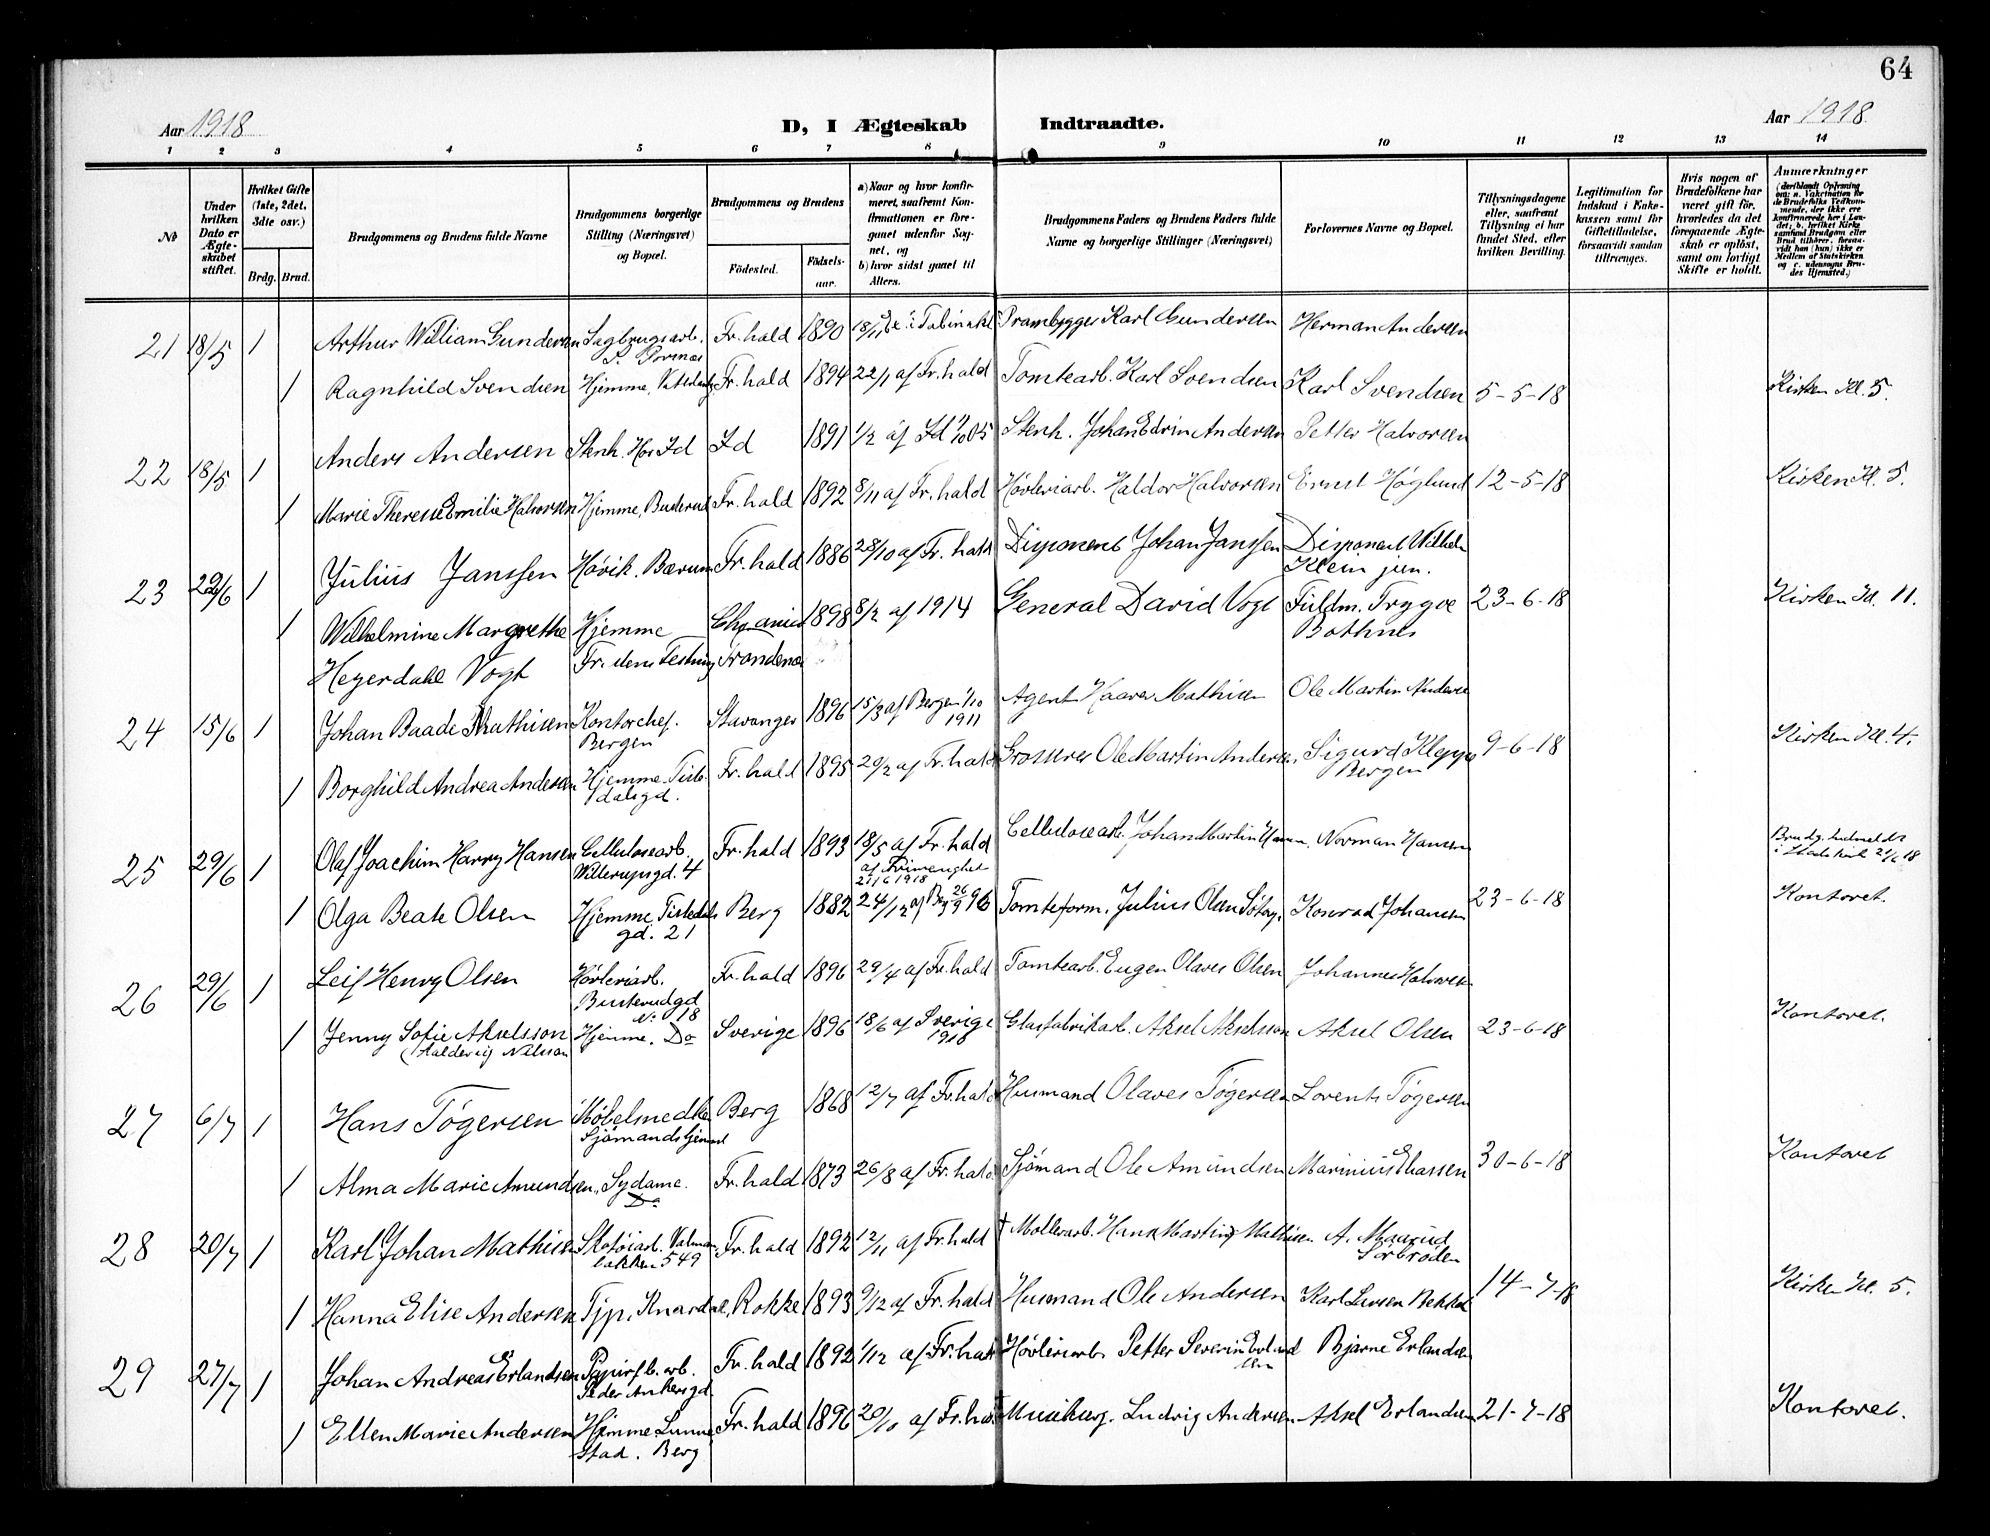 64
Aar 1918
D, I Ægteskab Indtraadte.
Aar 1918
1 2 3 4 5 6 7 8 9 10 11 12 13 14
№
Under hvilken Dato er Ægteskabet stiftet.
Hvilket Gifte (1ste, 2det, 3die osv.)
Brdg. Brud.
Brudgommens og Brudens fulde Navne
Brudgommens borgerlige Stilling (Næringsvei) og Bopæl.
Brudgommens og Brudens
Födested.
Födselsaar.
a) Naar og hvor konfirmeret, saafremt Konfirmationen er foregaaet udenfor Sognet, og
b) hvor sidst gaaet til Alters.
Brudgommens Faders og Brudens Faders fulde Navne og borgerlige Stillinger (Næringsvei)
Forlovernes Navne og Bopæl.
Tillysningsdagene eller, saafremt Tillysning ei har fundet Sted, efter hvilken Bevilling.
Legitimation for Indskud i Enkekassen samt for Giftetilladelse, forsaavidt saadan tiltrænges.
Hvis nogen af Brudefolkene har været gift för, hvorledes da det foregaaende Ægteskab er oplöst, samt om lovligt Skifte er holdt.
Anmærkninger
(deriblandt Oplysning om: a. Vakcination for de Brudefolks Vedkommende, der ikke ere konfirmerede her i Landet; b. hvilket Kirkesamfund Brudgom eller Brud tilhører, forsaavidt han (hun) ikke er Medlem af Statskirken og c. udensogns Brudes Hjemsted.)
21 18/5 1 Arthur William Gundersen Sagbrugsarb. Fr.hald 1890 18/11 Prambygger Karl Gundersen Herman Andersen
1 Ragnhild Svendsen Hjemme, Fr.hald 1894 22/1 af Fr.hald Tomtearb. Karl Svendsen Karl Svendsen 5-5-18 Kirken Kl. 5.
22 18/5 1 Anders Andersen Stenh. Id Id 1891 1/2 af Id Stenh. Johan Edvin Andersen Petter Halvorsen
1 Marie Therese Emilie Halvorsen Hjemme, Buderud Fr.hald 1892 8/11 af Fr.hald Høvleriarb. Haldor Halvorsen Ernst Høglund 12-5-18 Kirken Kl. 5.
23 29/6 1 Julius Janssen Høvik. Bærum Fr.hald 1886 28/10 af Fr.hald Disponent Johan Janssen Disponent Wilhelm
Klein jun.
1 Wilhelmine Margrethe Hjemme Chr.ania 1898 8/2 af 1914 General David Vogt Fuldm. Trygve 23-6-18 Kirken Kl. 11.
Bothner
Heyerdahl Vogt Fr.stens Festning Trondenæs
24 15/6 1 Johan Baade Mathisen Kontorchef. Stavanger 1896 15/3 af Bergen 1/10 Agent Haaver Mathisen Ole Martin Andersen
Bergen 1911
1 Borghild Andrea Andersen Hjemme Tistedalsgd. Fr.hald 1895 20/2 af Fr.hald Grosserer Ole Martin Andersen, Sigurd Kleppe 9-6-18 Kirken Kl. 4.
Bergen
25 29/6 1 Olaf Joachim Harry Hansen Cellulosearb. Fr.hald 1893 18/5 af Fr.hald Cellulosearb. Johan Martin Hansen, Norman Hansen Brudg. indmeldt
Willerupsgd. 4 af Frimenighet i Statskirk 21/6 18
21/6 1918
1 Olga Beate Olsen Hjemme, Tistedals Berg 1882 24/12 af Berg 96 Tomteform. Julius Olsen Konrad Johansen 23-6-18 Kontoret.
gd. 21
26 29/6 1 Leif Henry Olsen Høvleriarb. Fr.hald 1896 29/4 af Fr.hald Tomtearb. Eugen Olaves Olsen Johannes Halvorsen
Busterudgd
Nº 18
1 Jenny Sofie Akselsson Hjemme. Do Sverige 1896 18/6 af Sverige Glasfabrikarb. Aksel Akselsson Aksel Olsen 23-6-18 Kontoret.
1918
27 6/7 1 Hans Tøgersen Møbelsnedker Berg 1868 12/7 af Fr.hald Husmand Olaves Tøgersen Lorents Tøgersen
1 Alma Marie Amundsen, Sydame. Fr.hald 1873 26/8 af Fr.hald Sjømand Ole Amundsen Marinius Eliassen 30-6-18 Kontoret
Do
28 20/7 1 Karl Johan Mathisen Skotøiarb. Fr.hald 1892 12/11 af Fr.hald † Møllearb. Hans Martin Mathisen A. Maarud
549 Sørbrøden
1 Hanna Elise Andersen Tjp. Knardal, Rokke 1893 9/12 af Fr.hald Husmand Ole Andersen Karl Larsen 14-7-18 Kirken Kl. 5.
29 27/7 1 Johan Andreas Erlandsen Papirfb. arb. Fr.hald 1892 1/12 af Fr.hald Høvleriarb Petter Severin Erlandsen Bjarne Erlandsen
Peder Ankersgd
1 Ellen Marie Andersen Hjemme Fr.hald 1896 20/10 af Fr.hald † Musikerg. Ludvig Andersen Aksel Erlandsen 21-7-18 Kontoret.
stad. Berg